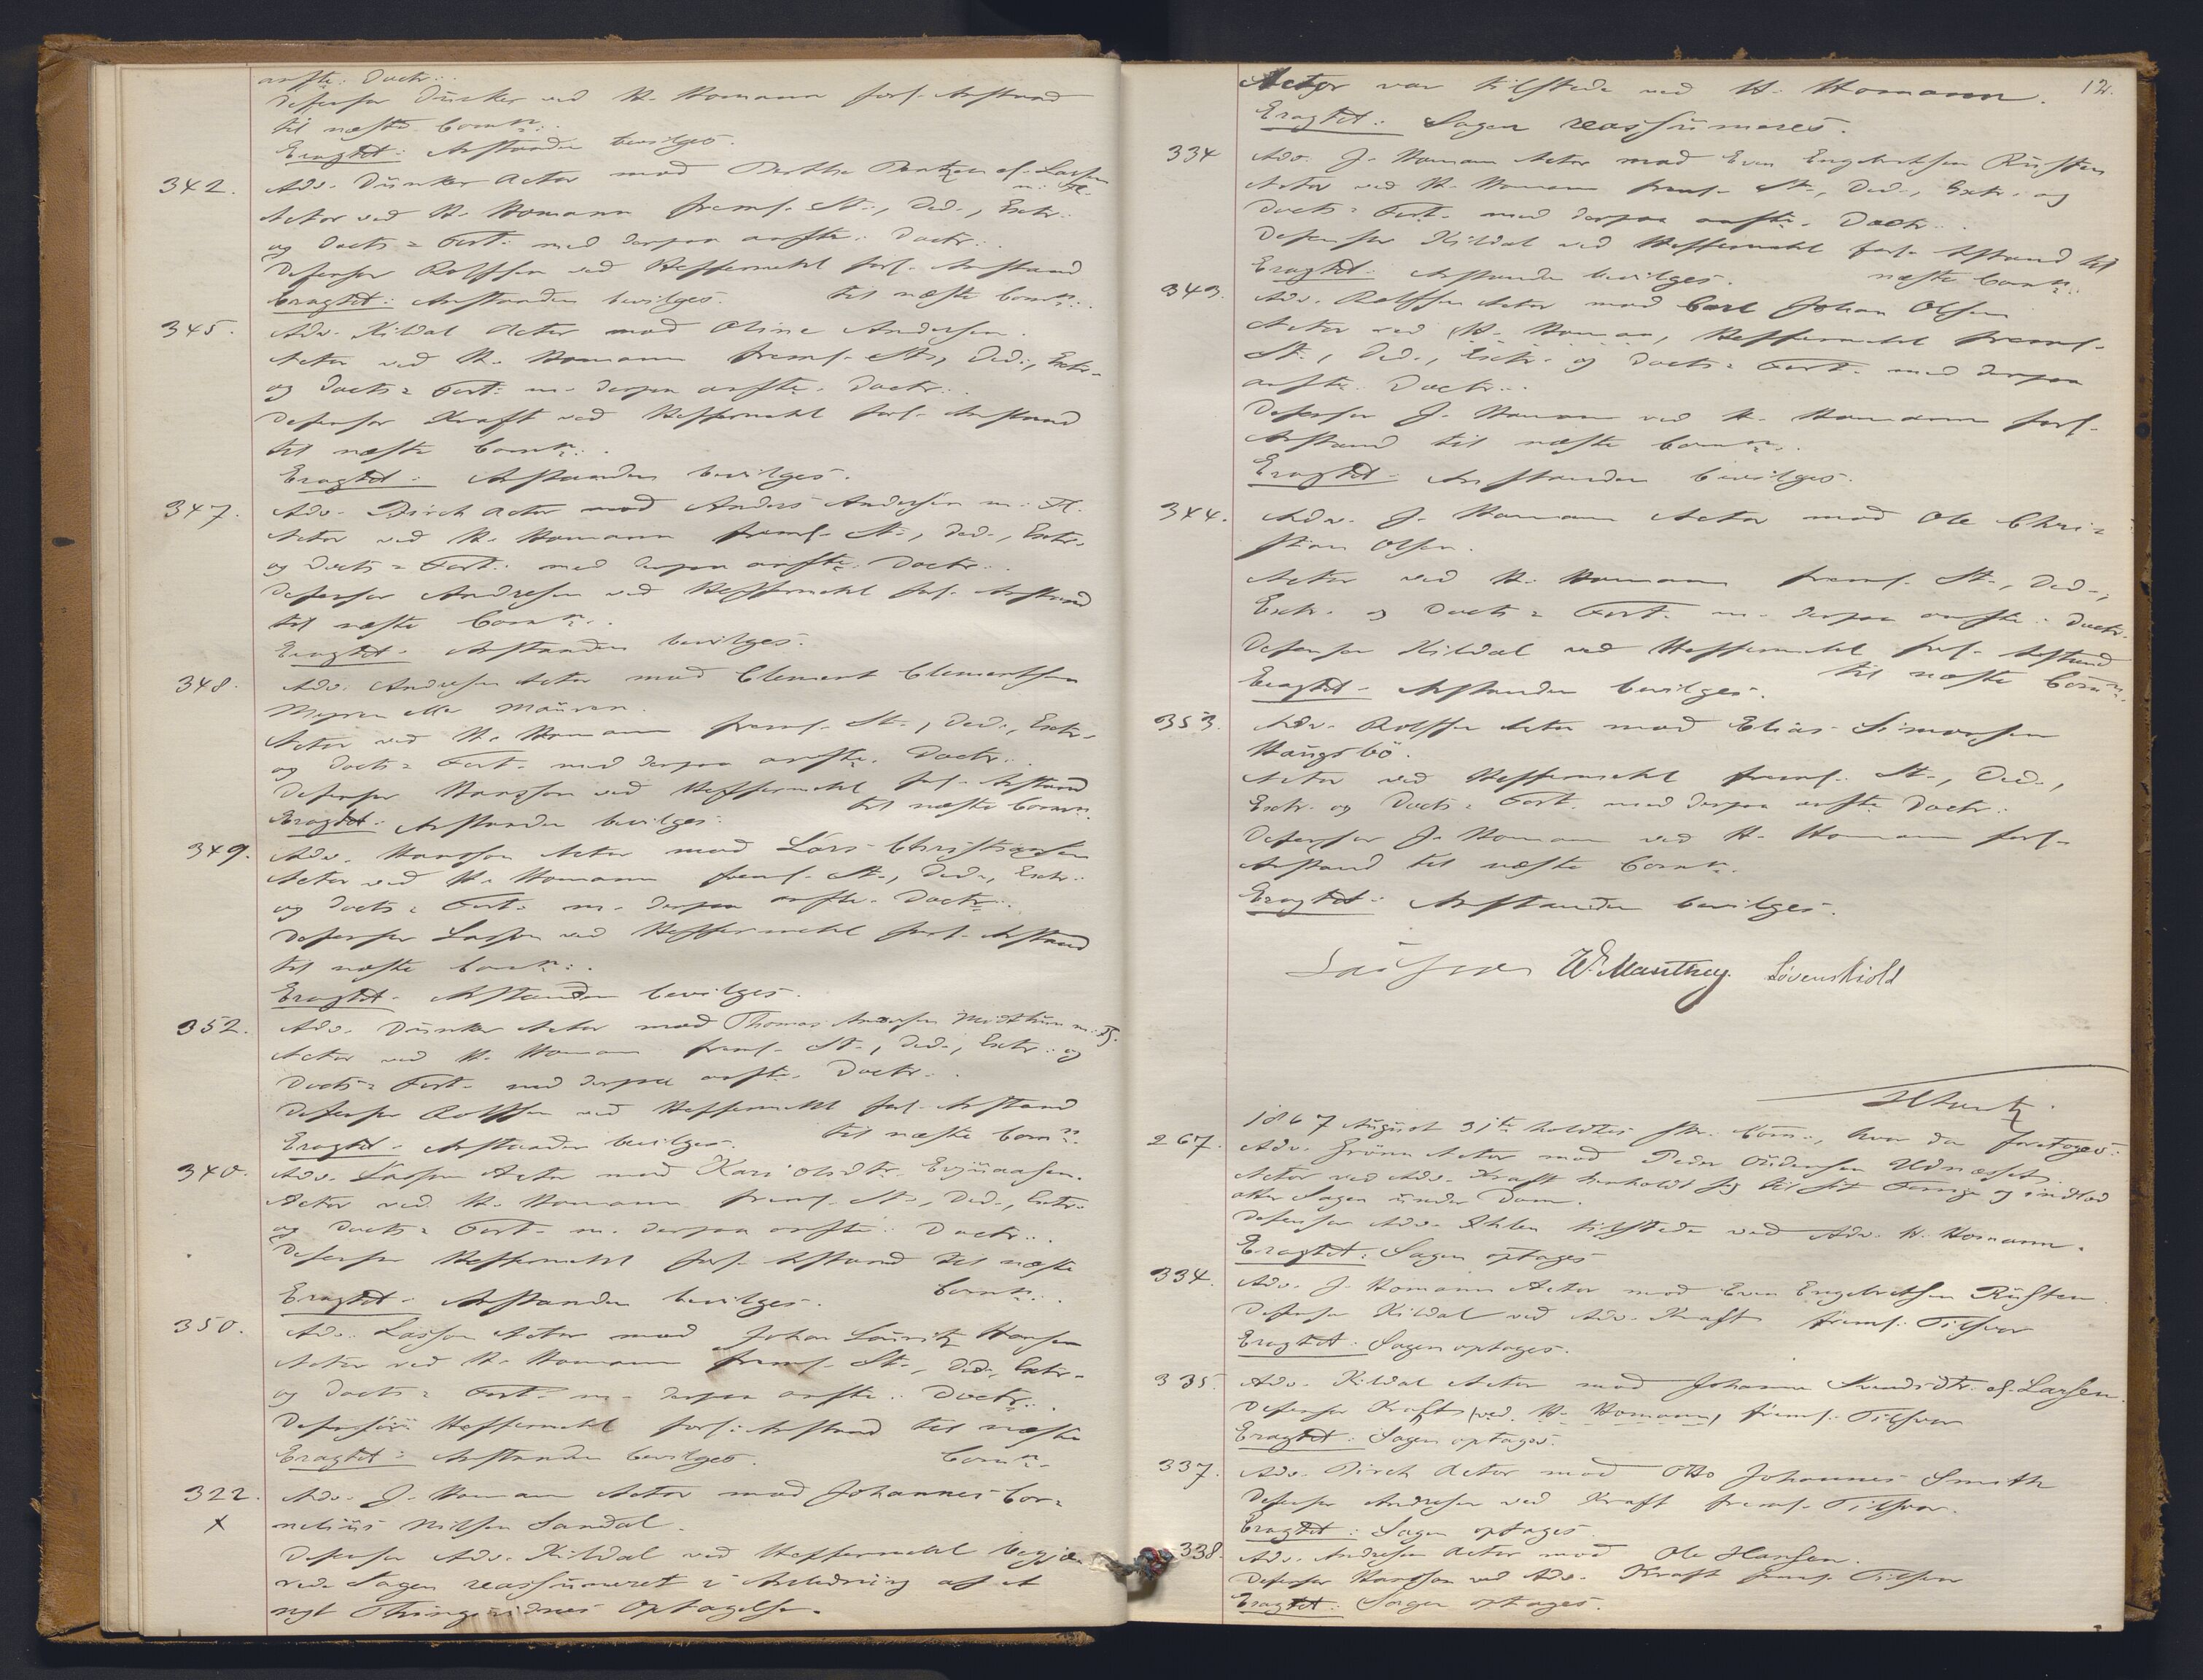 anfte: Doctr:.
Defensor Dunker ved H. Homann forl. Anstand
til næste Comn:.
Eragtet: Anstanden bevilges.
342. Adv. Dunker Actor mod Berthe Berntzen el. Larsen
m: Fl.
Actor ved H. Homann freml. St., Ded., Extr.
og Docts= Fort: med derpaa anfte: Doctr:.
Defensor Rolffsen ved Heffermehl forl. Anstand
til næste Comn:.
Eragtet: Anstanden bevilges.
345. Adv. Kildal Actor mod Oline Andersen.
Actor ved H. Homann freml. St., Ded., Extr.
og Docts= Fort: m. derpaa anfte. Doctr:.
Defensor Kraft ved Heffermehl forl. Anstand
til næste Comn:.
Eragtet: Anstanden bevilges.
347. Adv. Birch Actor mod Anders Andersen m: Fl.
Actor ved H. Homann freml. St., Ded., Extr.
og Docts= Fort: med derpaa anfte. Doctr:.
Defensor Andresen ved Heffermehl forl. Anstand
til næste Comn:.
Eragtet: Anstanden bevilges.
348. Adv. Andresen Actor mod Clement Clementsen
Myren eller Mauren.
Actor ved H. Homann freml. St., Ded., Extr.
og Docts= Fort. med derpaa anfte. Doctr.
Defensor Hansson ved Heffermehl forl. Anstand
til næste Comn:.
Eragtet: Anstanden bevilges.
349. Adv. Hansson Actor mod Lars Christiansen
Actor ved H. Homann freml. St., Ded., Extr.
og Docts= Fort. m. derpaa anfte. Doctr:.
Defensor Lasson ved Heffermehl forl. Anstand
til næste Comn:.
Eragtet. Anstanden bevilges.
352. Adv. Dunker Actor mod Thomas Andersen Midthun m. Fl.
Actor ved H. Homann freml. St., Ded., Extr. og
Docts= Fort. med derpaa anfte. Doctr.
Defensor Rolffsen ved Heffermehl forl. Anstand
til næste Comn:.
Eragtet. Anstanden bevilges.
340. Adv. Lasson Actor mod Kari Olsdtr.
Actor ved H. Homann freml. St., Ded., Extr.
og Docts= Fort. m. derpaa anfte: Doctr:.
Defensor Heffermehl forl. Anstand til næste
Comn:.
Eragtet: Anstanden bevilges.
350. Adv. Lasson Actor mod Johan Lauritz Hansen
Actor ved H. Homann freml. St., Ded., Extr.
og Docts= Fort. m. derpaa anfte: Doctr:.
Defensor Heffermehl forl: Anstand til næste
Comn:.
Eragtet: Anstanden bevilges.
322. Adv. J. Homann Actor mod Johannes Cor=
X nelius Nilsen Sandal.
Defensor Adv. Kildal ved Heffermehl begjæ=
rede Sagen reassumeret i Anledning af et
nyt Thingsvidnes Optagelse.
12.
Actor var tilstede ved H. Homann.
Eragtet: Sagen reassumeres.
334 Adv. J. Homann Actor mod Even Engebretsen Rusten
Actor ved H. Homann freml. St., Ded., Extr. og
Docts= Fort. med derpaa anfte. Doctr:.
Defensor Kildal ved Heffermehl forl. Anstand til
næste Comn:.
Eragtet: Anstanden bevilges.
343. Adv. Rolffsen Actor mod Carl Johan Olsen
Actor ved (H. Homan, Heffermehl freml.
St., Ded., Extr. og Docts= Fort. med derpaa
anfte. Doctr:.
Defensor J. Homann ved H. Homann forl.
Anstand til næste Comn:.
Eragtet: Anstanden bevilges.
344. Adv. J. Homann Actor mod Ole Chri=
stian Olsen.
Actor ved H. Homann freml. St., Ded.,
Extr. og Docts= Fort. m. derpaa anfte: Doctr.
Defensor Kildal ved Heffermehl forl. Anstand
til næste Comn:.
Eragtet. Anstanden bevilges.
353. Adv. Rolffsen Actor mod Elias Simonsen
Haugsbö.
Actor ved Heffermehl freml. St., Ded.,
Extr. og Docts= Fort. med derpaa anfte Doctr:.
Defensor J. Homann ved H. Homann forl.
Anstand til næste Comn:.
Eragtet: Anstanden bevilges.
W. Manthey. Løvenskiold
1867 August 31te holdtes Com:, hvor da foretoges:
267. Adv. Grönn Actor mod Peder Oudensen Udnæsset.
Actor ved Adv. Kraft henholdt sig til sit Forrige og indlod
atter Sagen under Dom.
Defensor Adv. Ihlen tilstede ved Adv. H. Homann.
Eragtet: Sagen optages
334. Adv. J. Homann Actor mod Even Engebretsen Rusten
Defensor Kildal ved Adv. Kraft freml. Tilsvar
Eragtet: Sagen optages.
335. Adv. Kildal Actor mod Johanne Svendsdtr. el. Larsen.
Defensor Kraft (ved H. Homann, freml. Tilsvar
Eragtet: Sagen optages.
337. Adv. Birch Actor mod Otto Johannes Smith
Defensor Andresen ved Kraft freml. Tilsvar.
Eragtet: Sagen optages.
338. Adv. Andresen Actor mod Ole Hansen.
Defensor Hansson ved Adv. Kraft freml. Tilsvar
Eragtet: Sagen optages.